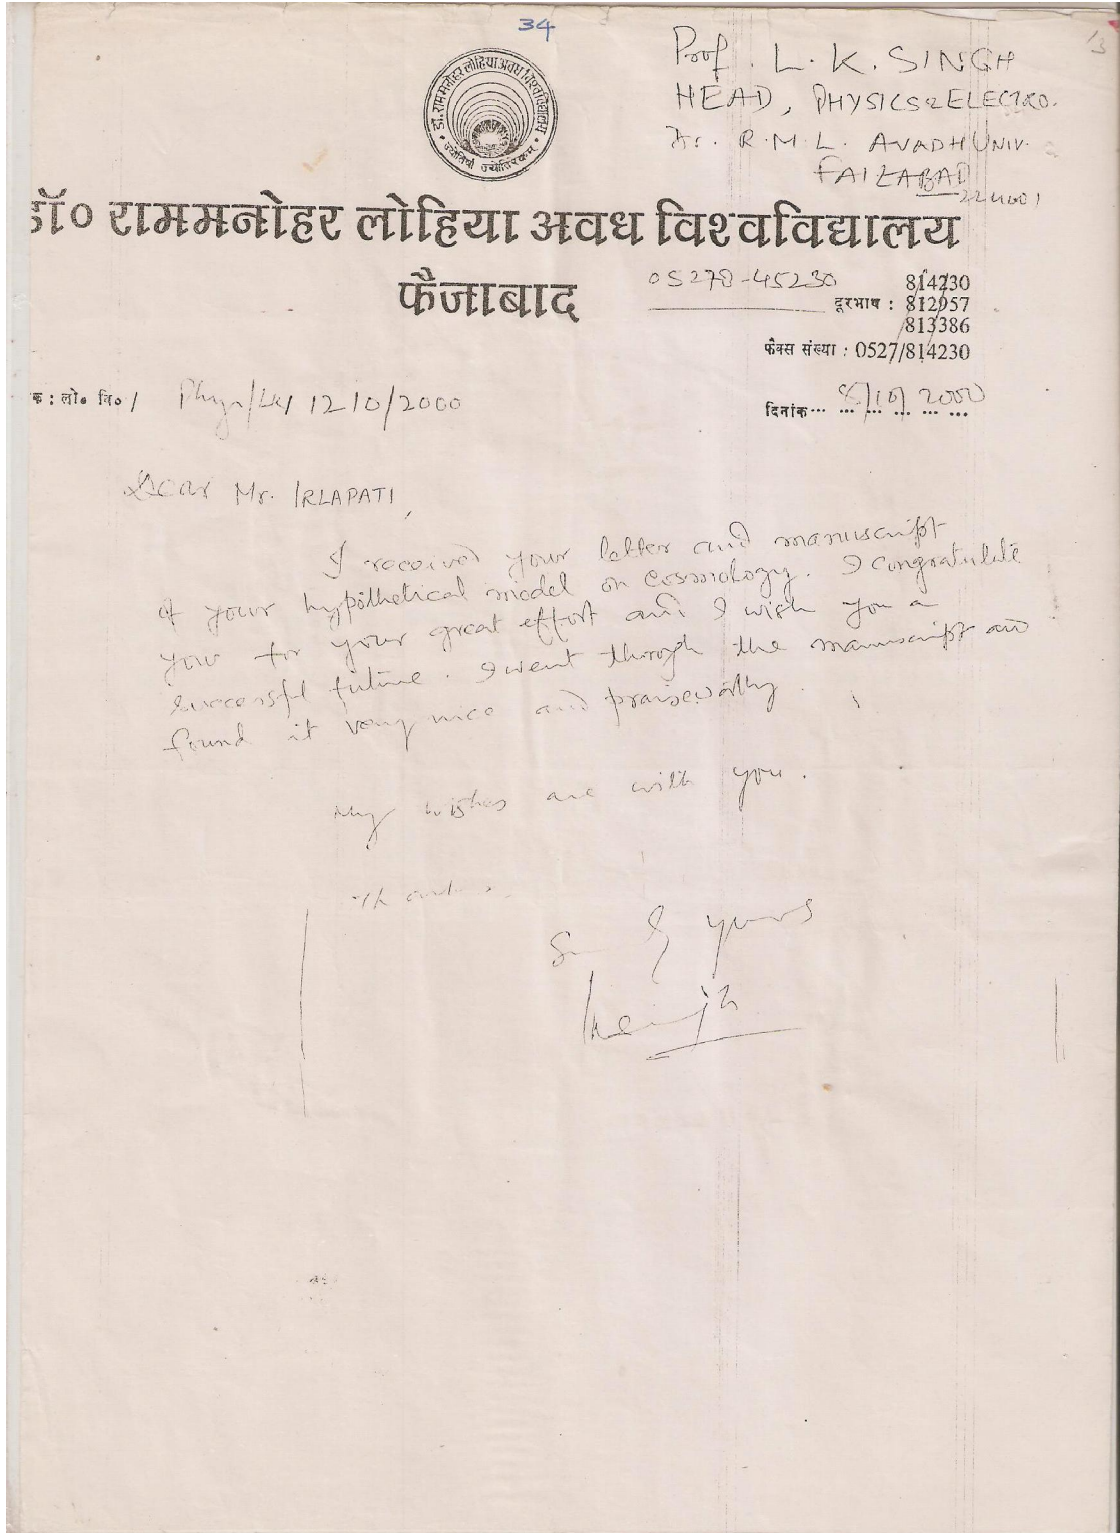 34
Prof. L. K. SINGH
HEAD, PHYSICS & ELECTRO.
Dr. R. M. L. AVADH UNIV.
FAIZABAD
224001
डॉ. राममनोहर लोहिया अवध विश्वविद्यालय
डॉ० राममनोहर लोहिया अवध विश्वविद्यालय
फैजाबाद
05278-45230
814230
दूरभाष : 812957
813386
फैक्स संख्या : 0527/814230
क : लो० वि० / 1210/2000
दिनांक 8/10/2000
Dear Mr. IRLAPATI,
I received your letter and manuscript
of your hypothetical model on cosmology. I congratulate
you for your great effort and I wish you a
successful future. I went through the manuscript and
found it very nice and praiseworthy.
My wishes are with you.
yours